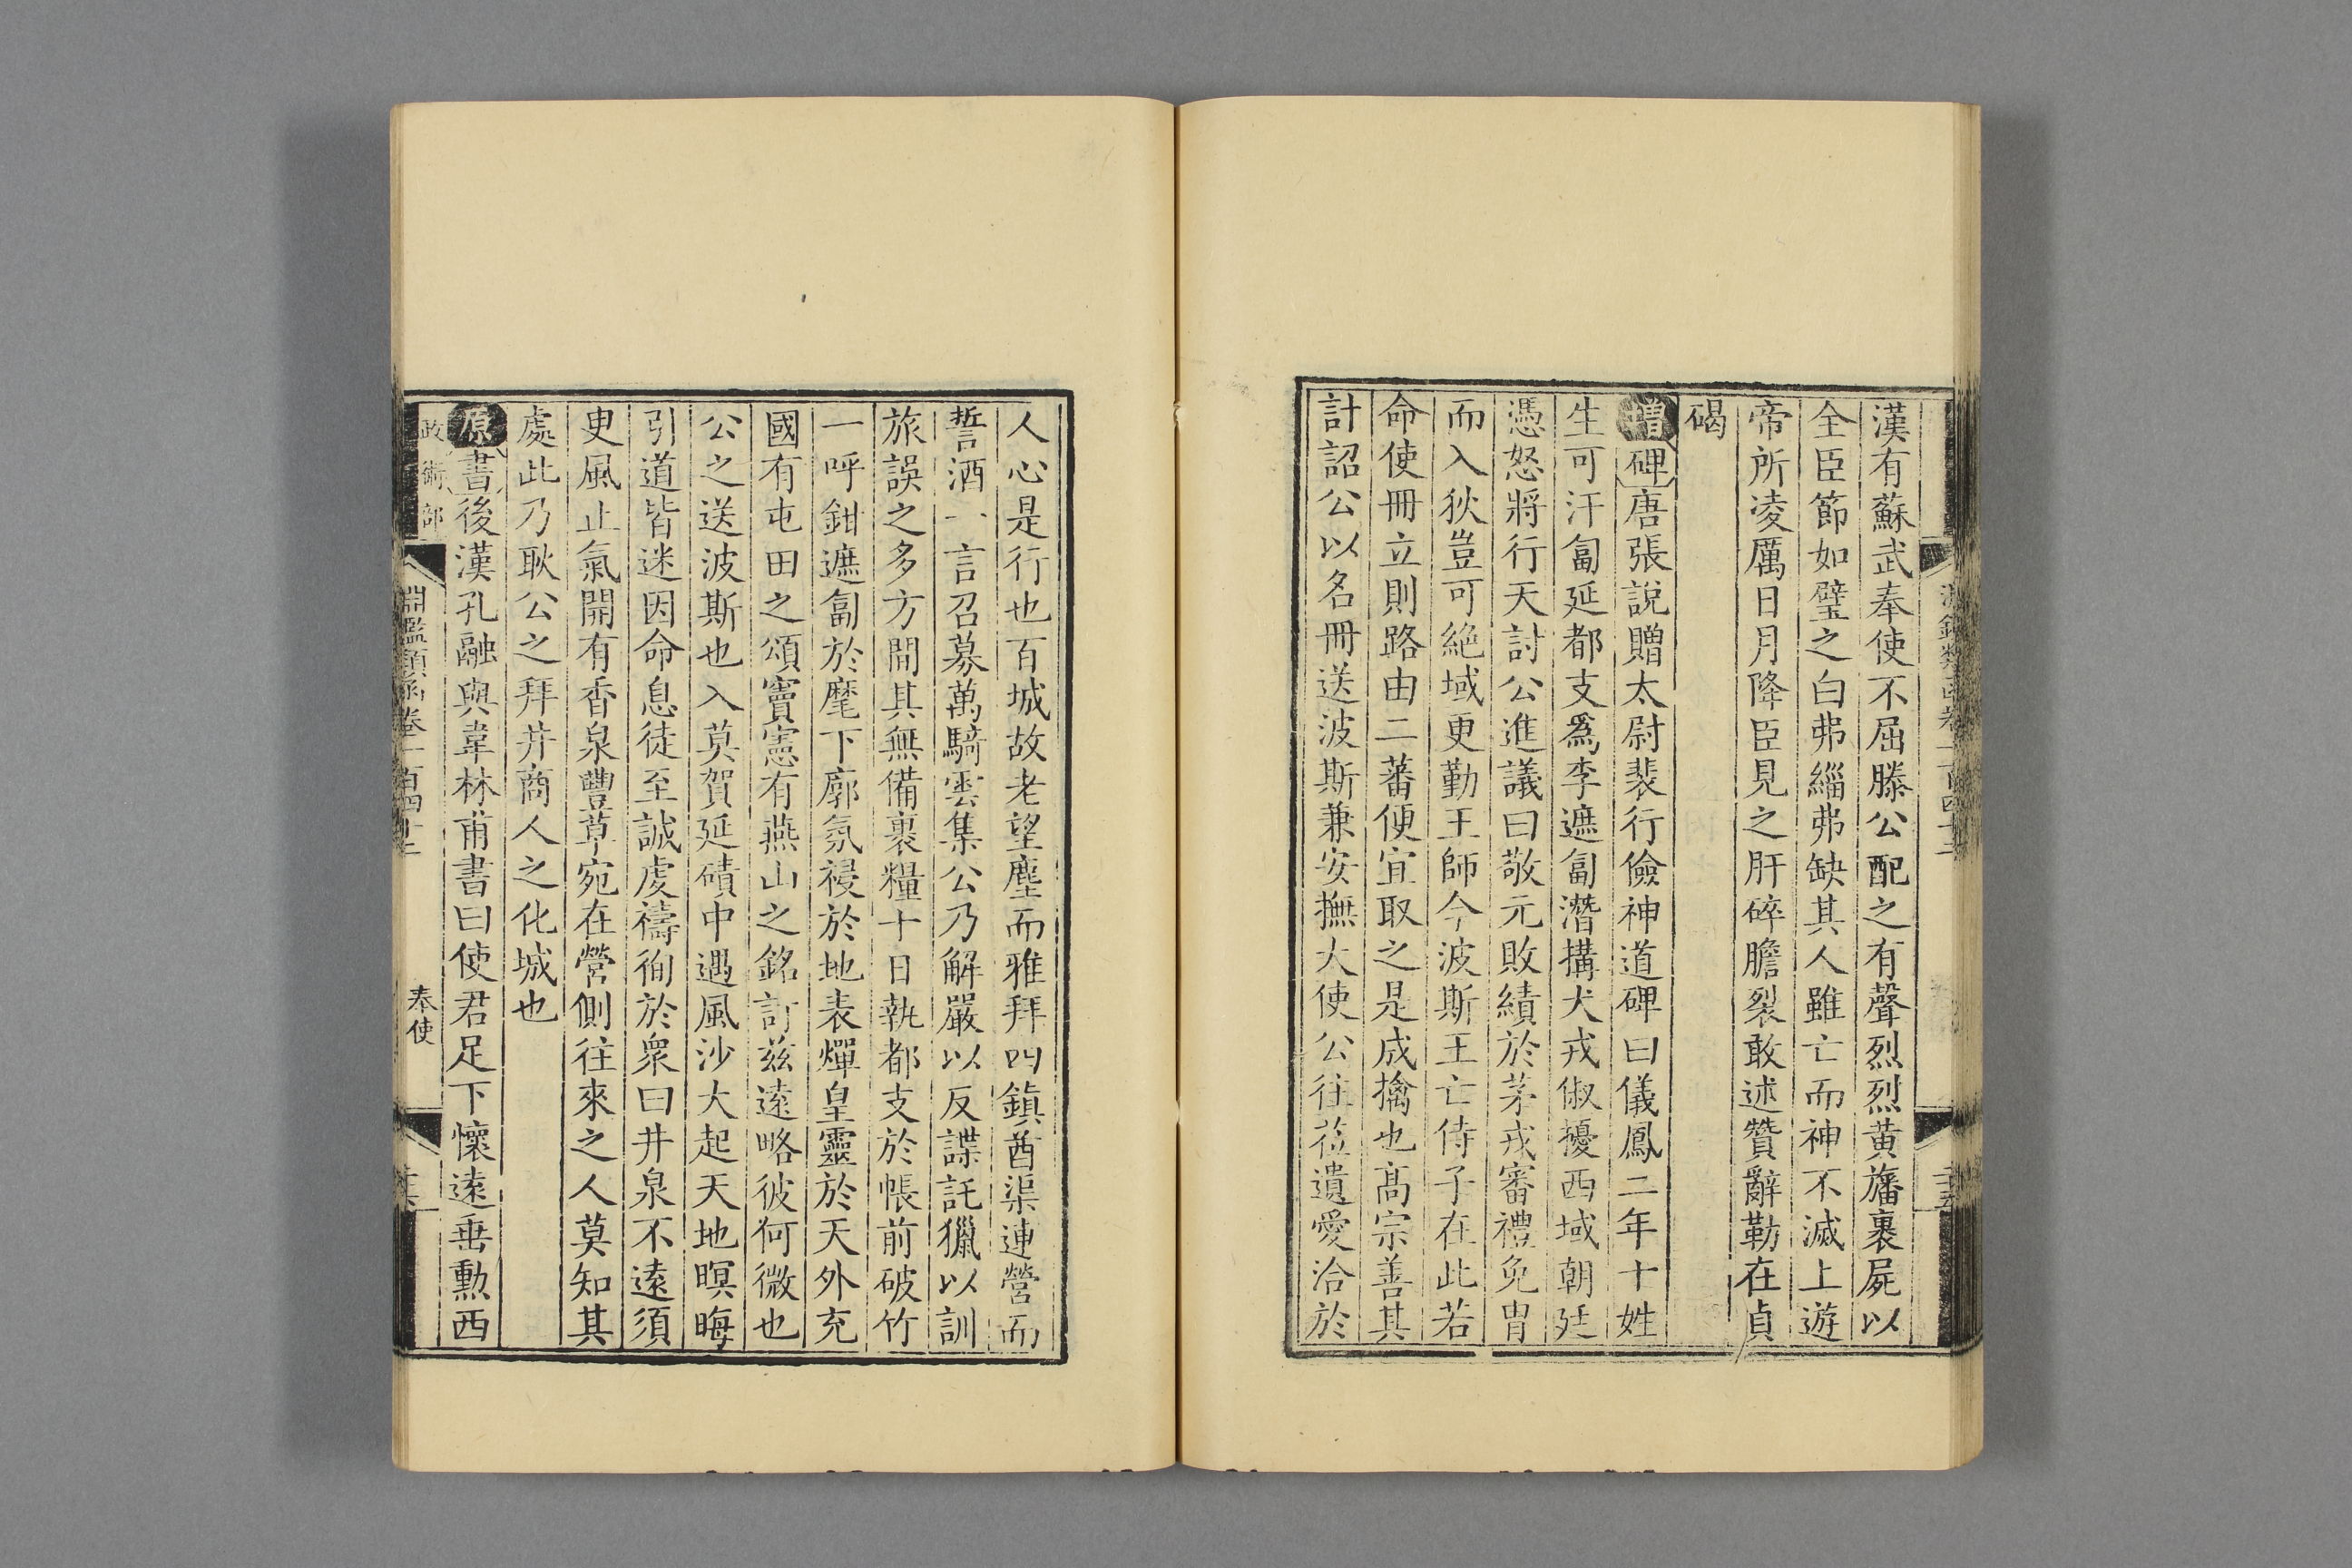 漢有蘇武奉使不屈滕公配之有聲烈烈黃旛裹屍以
全臣節如璧之白弗緇弗缺其人雖亡而神不滅上遊
帝所凌厲日月降臣見之肝碎膽裂敢述贊辭勒在貞
碣
增碑唐張說贈太尉裴行儉神道碑曰儀鳳二年十姓
生可汗匐延都支爲李遮匐潛搆犬戎俶擾西域朝廷
憑怒將行天討公進議曰敬元敗績於茅戎審禮免胄
而入狄豈可絶域更勤王師今波斯王亡侍子在此若
命使冊立則路由二蕃便宜取之是成擒也高宗善其
計詔公以名冊送波斯兼安撫大使公往莅遺愛洽於
人心是行也百城故老望塵而雅拜四鎮酋渠連營而
誓酒一言召募萬騎雲集公乃解嚴以反諜託獵以訓
旅誤之多方間其無備裹糧十日執都支於帳前破竹
一呼鉗遮匐於麾下廓氛祲於地表燀皇靈於天外充
國有屯田之頌竇憲有燕山之銘訂茲遠略彼何微也
公之送波斯也入莫賀延磧中遇風沙大起天地暝晦
引道皆迷因命息徒至誠虔禱徇於衆曰井泉不遠須
叓風止氣開有香泉豐草宛在營側往來之人莫知其
處此乃耿公之拜井商人之化城也
原書後漢孔融與韋林甫書曰使君足下懷遠垂勳西
政術部
淵鑑類函卷一百四十三
奉使